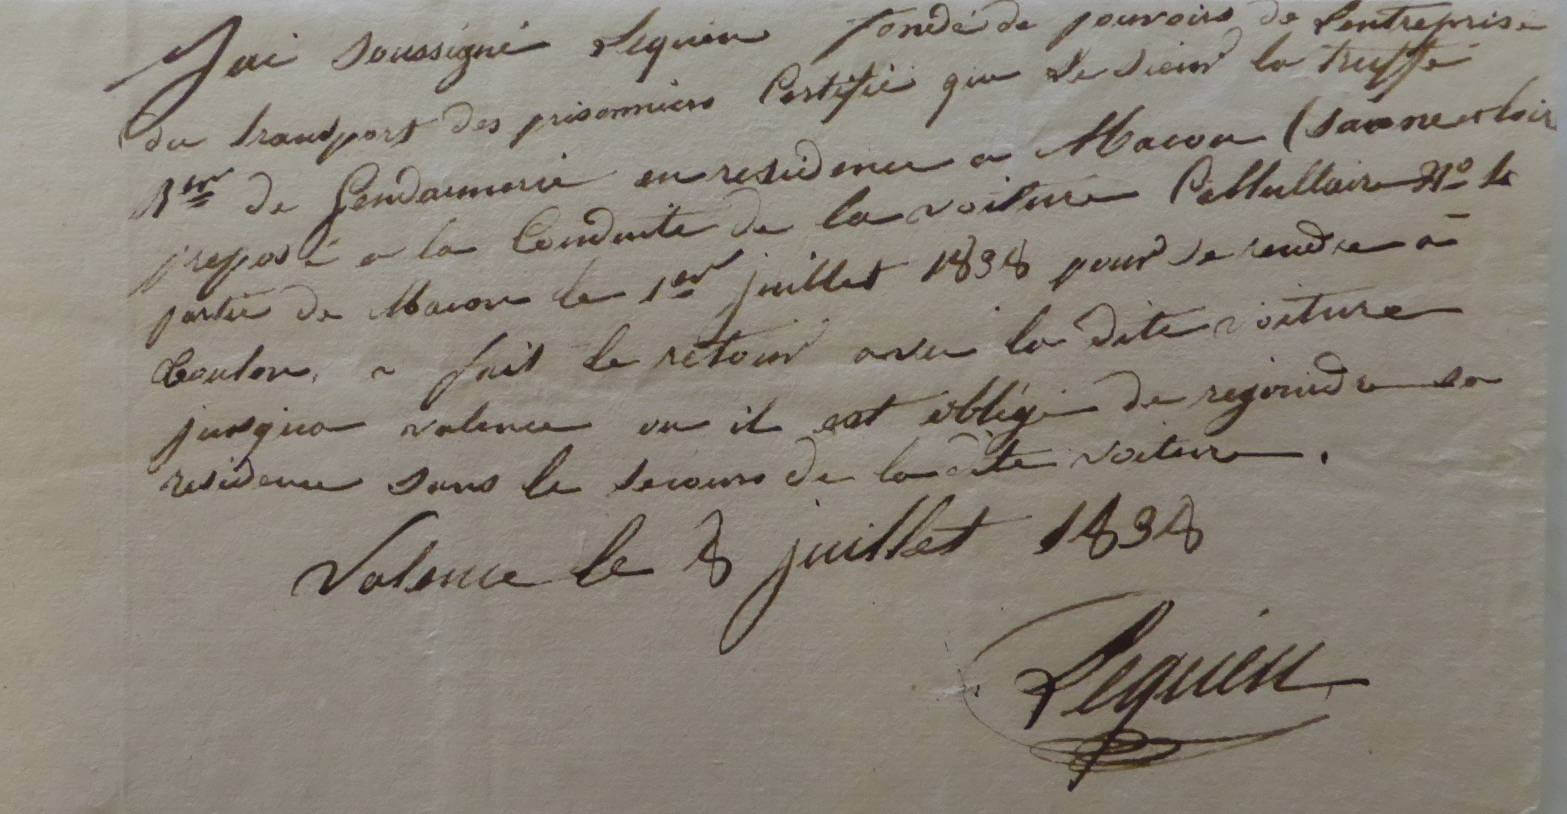 Jai soussigné Lequien fondé de pouvoirs de Lentreprise
du transport des prisonniers Certifie que Le sieur la truffe
de Gendarmerie en residence a Macon (Saone et loir
preposé a la Conduite de la voiture Cellullaire No
partie de Macon le 1er juillet 1838 pour se rendre à
Toulon, a fait le retour avec la dite voiture
jusqua valence ou il est obligé de rejoindre sa
residence sans le secours de la dite voiture.
Valence le 8 juillet 1838
Lequien